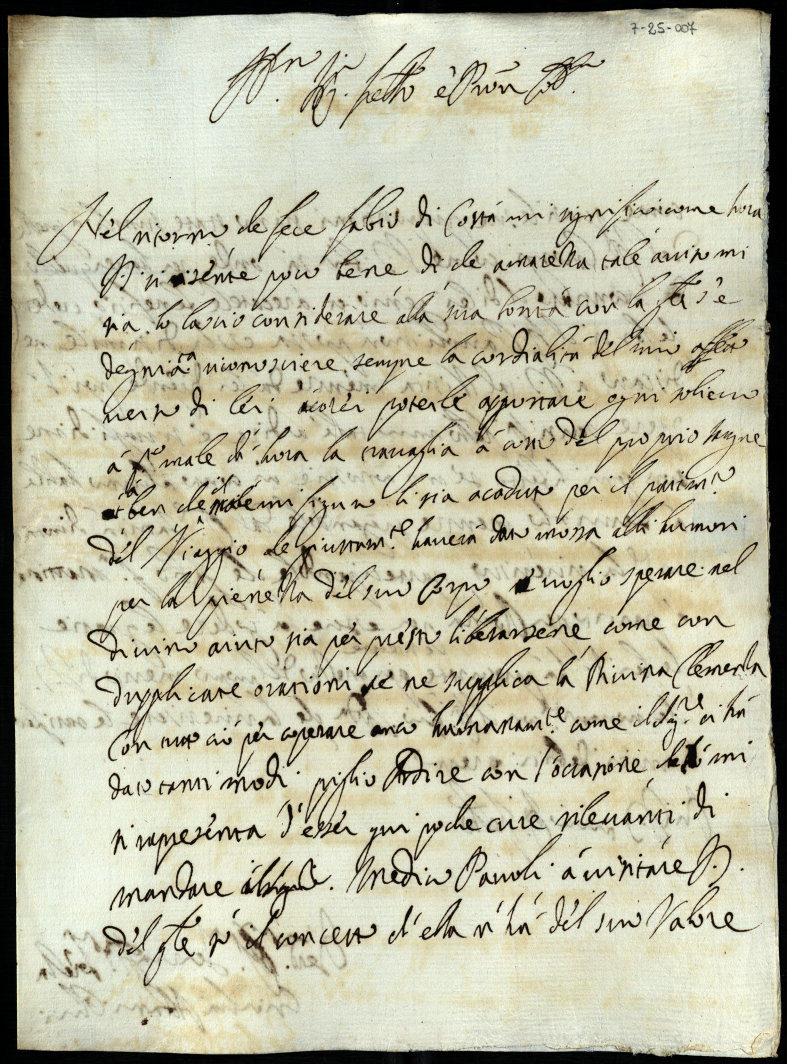 7-25-007
è
Nel ritorno che fece Fabio di Costà mi significò come hora
si risente poco bene di che amarezza tale aviso mi
sia lo lascio considerare alla sua bontà con la s'è
degniata riconosciere sempre la cordialità del mio affetto
verso di lei poterle apportare ogni
à male ch' hora la travaglia à costo del proprio sangue
ben che mi figuro li sia acaduto per il patim.to
del Viaggio che giustam.te haverà dato mossa alli humori
per la pienezza del suo Corpo voglio sperare nel
divino aiuto sia per presto liberarsene, come con
dupplicate orationi se ne supplica la Divina Clemenza
Con tutto ciò per coperare anco humanam.te come il Sig.re ci hà
dato tanti modi piglio Ardire con l'occasione mi
si rapresenta d'esser qui poche cure rilevanti di
mandare Medico Pauoli à visitare
del so il concetto ch'ella n'hà del suo Valore